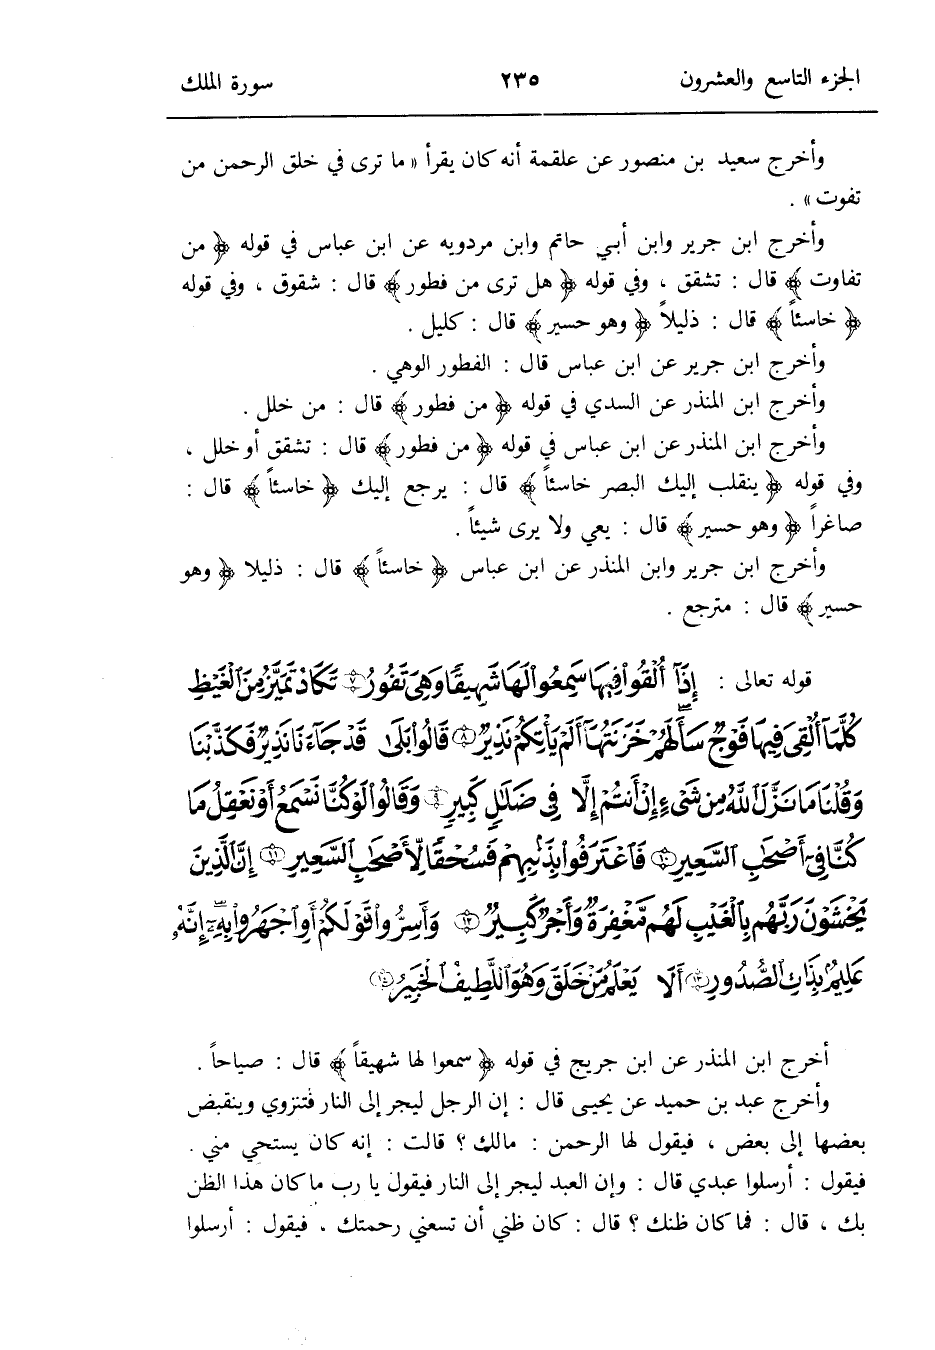 الجزء التاسع والعشرون ٢٣٥ سورة الملك
وأخرج سعيد بن منصور عن علقمة أنه كان يقرأ « ما ترى في خلق الرحمن من
تفوت » .
وأخرج ابن جرير وابن أبي حاتم وابن مردويه عن ابن عباس في قوله ﴿ من
تفاوت ﴾ قال : تشقق ، وفي قوله ﴿ هل ترى من فطور ﴾ قال : شقوق ، وفي قوله
﴿ خاسئاً ﴾ قال : ذليلاً ﴿ وهو حسير ﴾ قال : كليل .
وأخرج ابن جرير عن ابن عباس قال : الفطور الوهي .
وأخرج ابن المنذر عن السدي في قوله ﴿ من فطور ﴾ قال : من خلل .
وأخرج ابن المنذر عن ابن عباس في قوله ﴿ من فطور ﴾ قال : تشقق أو خلل ،
وفي قوله ﴿ ينقلب إليك البصر خاسئاً ﴾ قال : يرجع إليك ﴿ خاسئاً ﴾ قال :
صاغراً ﴿ وهو حسير ﴾ قال : يعي ولا يرى شيئاً .
وأخرج ابن جرير وابن المنذر عن ابن عباس ﴿ خاسئاً ﴾ قال : ذليلا ﴿ وهو
حسير ﴾ قال : مترجع .
قوله تعالى : إِذَآ أُلْقُوا۟ فِيهَا سَمِعُوا۟ لَهَا شَهِيقًا وَهِىَ تَفُورُ ۝٧ تَكَادُ تَمَيَّزُ مِنَ ٱلْغَيْظِ
كُلَّمَآ أُلْقِىَ فِيهَا فَوْجٌ سَأَلَهُمْ خَزَنَتُهَآ أَلَمْ يَأْتِكُمْ نَذِيرٌ ۝٨ قَالُوا۟ بَلَىٰ قَدْ جَآءَنَا نَذِيرٌ فَكَذَّبْنَا
وَقُلْنَا مَا نَزَّلَ ٱللَّهُ مِن شَىْءٍ إِنْ أَنتُمْ إِلَّا فِى ضَلَٰلٍ كَبِيرٍ ۝٩ وَقَالُوا۟ لَوْ كُنَّا نَسْمَعُ أَوْ نَعْقِلُ مَا
كُنَّا فِىٓ أَصْحَٰبِ ٱلسَّعِيرِ ۝١٠ فَٱعْتَرَفُوا۟ بِذَنۢبِهِمْ فَسُحْقًا لِّأَصْحَٰبِ ٱلسَّعِيرِ ۝١١ إِنَّ ٱلَّذِينَ
يَخْشَوْنَ رَبَّهُم بِٱلْغَيْبِ لَهُم مَّغْفِرَةٌ وَأَجْرٌ كَبِيرٌ ۝١٢ وَأَسِرُّوا۟ قَوْلَكُمْ أَوِ ٱجْهَرُوا۟ بِهِۦٓ إِنَّهُۥ
عَلِيمٌۢ بِذَاتِ ٱلصُّدُورِ ۝١٣ أَلَا يَعْلَمُ مَنْ خَلَقَ وَهُوَ ٱللَّطِيفُ ٱلْخَبِيرُ ۝١٤
أخرج ابن المنذر عن ابن جريج في قوله ﴿ سمعوا لها شهيقاً ﴾ قال : صياحاً .
وأخرج عبد بن حميد عن يحيى قال : إن الرجل ليجر إلى النار فتنزوي وينقبض
بعضها إلى بعض ، فيقول لها الرحمن : مالك ؟ قالت : إنه كان يستحي مني .
فيقول : أرسلوا عبدي قال : وإن العبد ليجر إلى النار فيقول يا رب ما كان هذا الظن
بك ، قال : فما كان ظنك ؟ قال : كان ظني أن تسعني رحمتك ، فيقول : أرسلوا